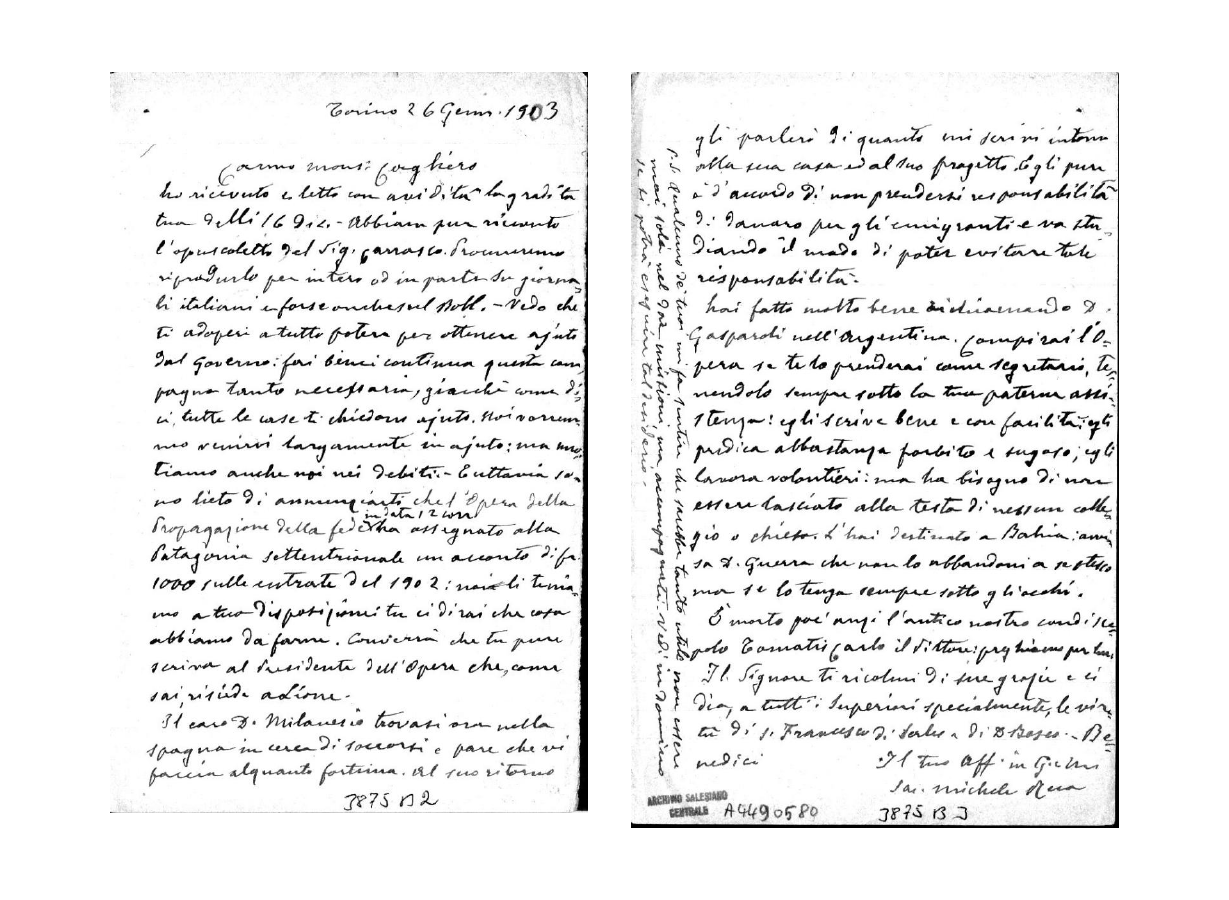 Torino 26 Genn. 1903
Carmo monsi Cagliero
ho ricevuto e letto con avidità la gradita
tua delli 16 Dic. - Abbiam pur ricevuto
l'opuscoletto del Sig. Carrasco. Procureremo
riprodurlo per intero od in parte su giorna-
li italiani e forse anche sul Boll. - Vedo che
ti adoperi a tutto potere per ottenere ajuto
dal Governo: fai bene; continua questa cam
pagna tanto necessaria, giacchè come di-
ci, tutte le case ti chiedono ajuto. Noi vorrem-
mo venirvi largamente in ajuto; ma nuo-
tiamo anche noi nei debiti. - Tuttavia so-
no lieto di annunciarti che l'Opera della
in data 12 corr.
Propagazione della fede ha assegnato alla
Patagonia settentrionale un acconto di fr.
1000 sulle entrate del 1902: noi li tenia-
mo a tua disposizione: tu ci dirai che cosa
abbiamo da farne. Converrà che tu pure
scriva al Presidente dell'Opera che, come
sai, risiede a Lione.
Il caro D. Milanesio trovasi ora nella
Spagna in cerca di soccorsi e pare che vi
faccia alquanto fortuna. Al suo ritorno
3875 B 2
gli parlerò di quanto mi scrivi intorno
alla sua casa ed al suo progetto. Egli pure
è d'accordo di non prendersi responsabilità
di danaro per gli emigranti e va stu-
diando il modo di poter evitare tale
responsabilità.
hai fatto molto bene richiamando D.
Gasparoli nell'Argentina. Compirai l'O-
pera se te lo prenderai come segretario, te-
nendolo sempre sotto la tua paterna assi-
stenza: egli scrive bene e con facilità; egli
predica abbastanza forbito e sugoso; egli
lavora volontieri: ma ha bisogno di non
essere lasciato alla testa di nessun colle-
gio o chiesa. L'hai destinato a Bahia: avvi
sa D. Guerra che non lo abbandoni a se stesso
ma se lo tenga sempre sotto gli occhi.
È morto poc'anzi l'antico nostro condisce-
polo Tomatis Carlo il pittore: preghiamo per lui.
Il Signore ti ricolmi di sue grazie e ci
dia, a tutti i Superiori specialmente, le vir-
tù di S. Francesco di Sales e di D Bosco. - Be-
nedici
Il tuo Aff. in G. e M.
Sac. Michele Rua
P.S. Qualcuno de' tuoi mi fa sentire che sarebbe tanto utile non essere
mai soli nel dar missioni, ma accompagnati. Vedi in Domino
se si potrà eseguire tal desiderio.
ARCHIVIO SALESIANO
CENTRALE
A4490580
3875 B 3